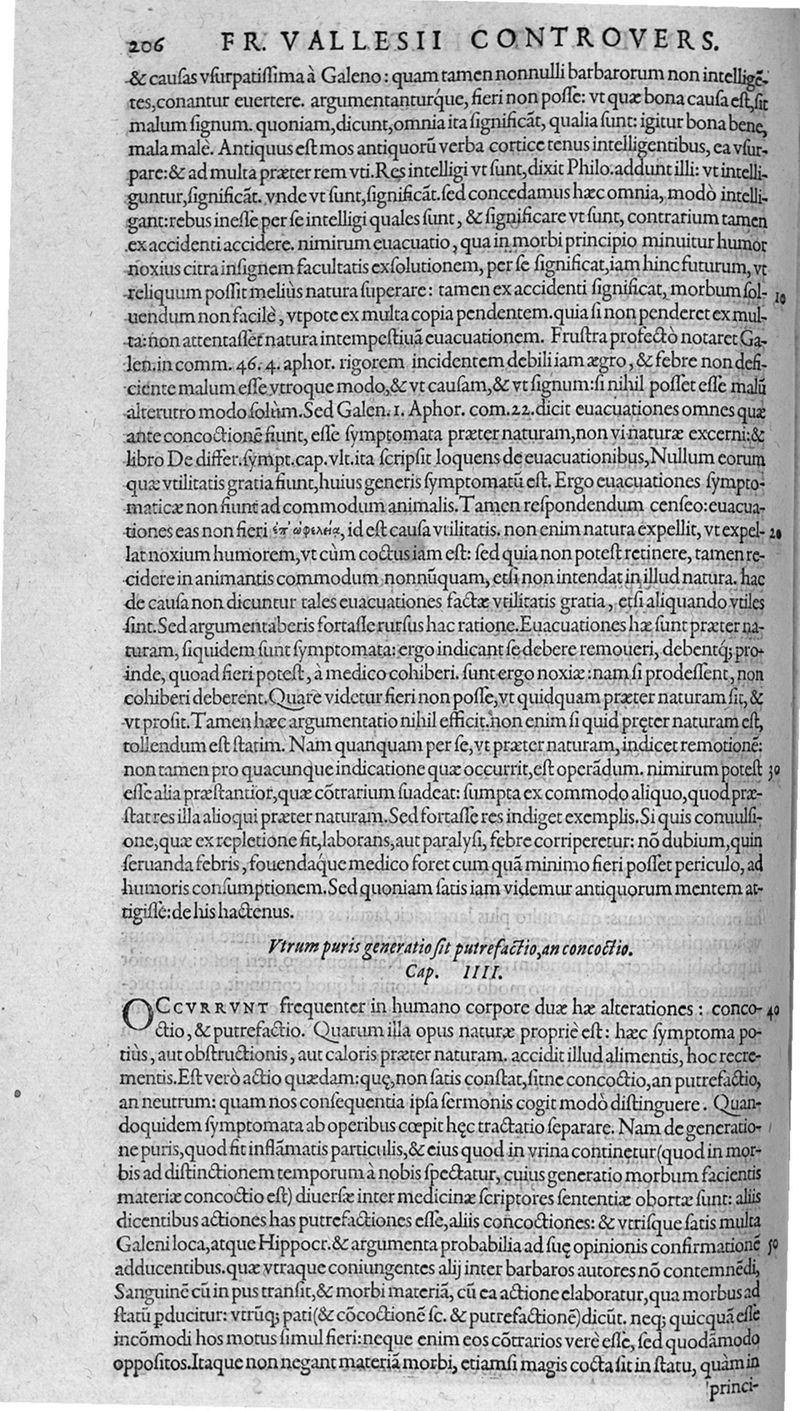 206 FR. VALLESII CONTROVERS.
& cauſas vſurpatiſſima à Galeno: quam tamen nonnulli barbarorum non intelligẽ-
tes, conantur euertere. argumentanturq́ue, fieri non poſſe: vt quæ bona cauſa eſt, ſit
malum ſignum. quoniam, dicunt, omnia ita ſignificãt, qualia ſunt: igitur bona bene,
mala malè. Antiquus eſt mos antiquorũ verba cortice tenus intelligentibus, ea vſur-
pare: & ad multa præter rem vti. Res intelligi vt ſunt, dixit Philo. addunt illi: vt intelli-
guntur, ſignificãt. vnde vt ſunt, ſignificãt. ſed concedamus hæc omnia, modò intelli-
gant: rebus ineſſe per ſe intelligi quales ſunt, & ſignificare vt ſunt, contrarium tamen
ex accidenti accidere. nimirum euacuatio, qua in morbi principio minuitur humor
noxius citra inſignem facultatis exſolutionem, per ſe ſignificat, iam hinc futurum, vt
reliquum poſſit meliùs natura ſuperare: tamen ex accidenti ſignificat, morbum ſol- 10
uendum non facilè, vtpote ex multa copia pendentem. quia ſi non penderet ex mul-
ta: non attentaſſet natura intempeſtiuã euacuationem. Fruſtra profectò notaret Ga-
len. in comm. 46. 4. aphor. rigorem incidentem debili iam ægro, & febre non defi-
ciente malum eſſe vtroque modo, & vt cauſam, & vt ſignum: ſi nihil poſſet eſſe malũ
alterutro modo ſolùm. Sed Galen. 1. Aphor. com. 22. dicit euacuationes omnes quæ
ante concoctionẽ fiunt, eſſe ſymptomata præter naturam, non vi naturæ excerni: &
libro De differ. ſympt. cap. vlt. ita ſcripſit loquens de euacuationibus, Nullum eorum
quæ vtilitatis gratia fiunt, huius generis ſymptomatũ eſt. Ergo euacuationes ſympto-
maticæ non fiunt ad commodum animalis. Tamen reſpondendum cenſeo: euacua-
tiones eas non fieri ἐπ' ὠφελείᾳ, id eſt cauſa vtilitatis. non enim natura expellit, vt expel- 20
lat noxium humorem, vt cùm coctus iam eſt: ſed quia non poteſt retinere, tamen re-
cidere in animantis commodum nonnũquam, etſi non intendat in illud natura. hac
de cauſa non dicuntur tales euacuationes factæ vtilitatis gratia, etſi aliquando vtiles
ſint. Sed argumentaberis fortaſſe rurſus hac ratione. Euacuationes hæ ſunt præter na-
turam, ſiquidem ſunt ſymptomata: ergo indicant ſe debere remoueri, debentq́; pro-
inde, quoad fieri poteſt, à medico cohiberi. ſunt ergo noxiæ: nam ſi prodeſſent, non
cohiberi deberent. Quare videtur fieri non poſſe, vt quidquam præter naturam ſit, &
vt proſit. Tamen hæc argumentatio nihil efficit. non enim ſi quid pręter naturam eſt,
tollendum eſt ſtatim. Nam quanquam per ſe, vt præter naturam, indicet remotionẽ:
non tamen pro quacunque indicatione quæ occurrit, eſt operãdum. nimirum poteſt 30
eſſe alia præſtantior, quæ cõtrarium ſuadeat: ſumpta ex commodo aliquo, quod præ-
ſtat res illa alioqui præter naturam. Sed fortaſſe res indiget exemplis. Si quis conuulſi-
one, quæ ex repletione fit, laborans, aut paralyſi, febre corriperetur: nõ dubium, quin
ſeruanda febris, fouendaq́ue medico foret cum quã minimo fieri poſſet periculo, ad
humoris conſumptionem. Sed quoniam ſatis iam videmur antiquorum mentem at-
tigiſſe: de his hactenus.
Vtrum puris generatio ſit putrefactio, an concoctio.
Cap. IIII.
OCCVRRVNT frequenter in humano corpore duæ hæ alterationes: conco- 40
ctio, & putrefactio. Quarum illa opus naturæ propriè eſt: hæc ſymptoma po-
tiùs, aut obſtructionis, aut caloris præter naturam. accidit illud alimentis, hoc recre-
mentis. Eſt verò actio quædam: quę, non ſatis conſtat, ſitne concoctio, an putrefactio,
an neutrum: quam nos conſequentia ipſa ſermonis cogit modò diſtinguere. Quan-
doquidem ſymptomata ab operibus cœpit hęc tractatio ſeparare. Nam de generatio-
ne puris, quod fit inflãmatis particulis, & eius quod in vrina continetur (quod in mor-
bis ad diſtinctionem temporum à nobis ſpectatur, cuius generatio morbum facientis
materiæ concoctio eſt) diuerſæ inter medicinæ ſcriptores ſententiæ obortæ ſunt: aliis
dicentibus actiones has putrefactiones eſſe, aliis concoctiones: & vtriſque ſatis multa
Galeni loca, atque Hippocr. & argumenta probabilia ad ſuę opinionis confirmationẽ 50
adducentibus. quæ vtraque coniungentes alij inter barbaros autores nõ contemnẽdi,
Sanguinẽ cũ in pus tranſit, & morbi materiã, cũ ea actione elaboratur, qua morbus ad
ſtatũ ꝓducitur: vtrũq; pati (& cõcoctionẽ ſc. & putrefactionẽ) dicũt. neq; quicquã eſſe
incõmodi hos motus ſimul fieri: neque enim eos cõtrarios verè eſſe, ſed quodãmodo
oppoſitos. Itaque non negant materiã morbi, etiamſi magis cocta ſit in ſtatu, quàm in
princi-